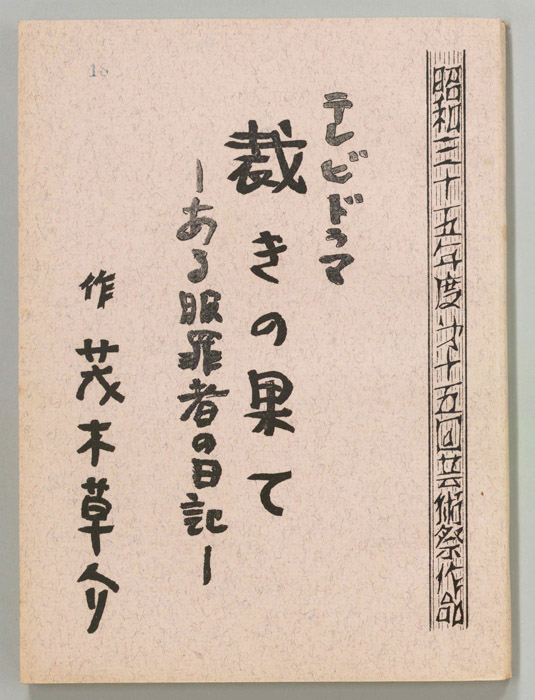 昭和三十五年度才十五回芸術祭作品
テレビドラマ
裁きの果て
―ある服罪者の日記―
作 茂木草介
16